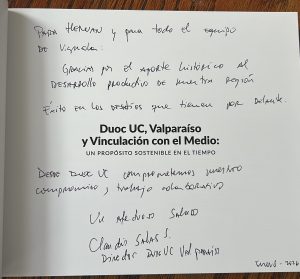 Para Hernan y para todo el equipo
de Vignola:
Gracias por el aporte histórico al
desarrollo productivo de nuestra región
Éxito en los desafíos que tienen por delante.
Duoc UC, Valparaíso
y Vinculación con el Medio:
UN PROPÓSITO SOSTENIBLE EN EL TIEMPO
Desde Duoc UC comprometemos nuestro
compromiso y trabajo colaborativo
Un afectuoso saludo
Claudio Salas S.
Director Duoc UC Valparaíso
Enero - 2024